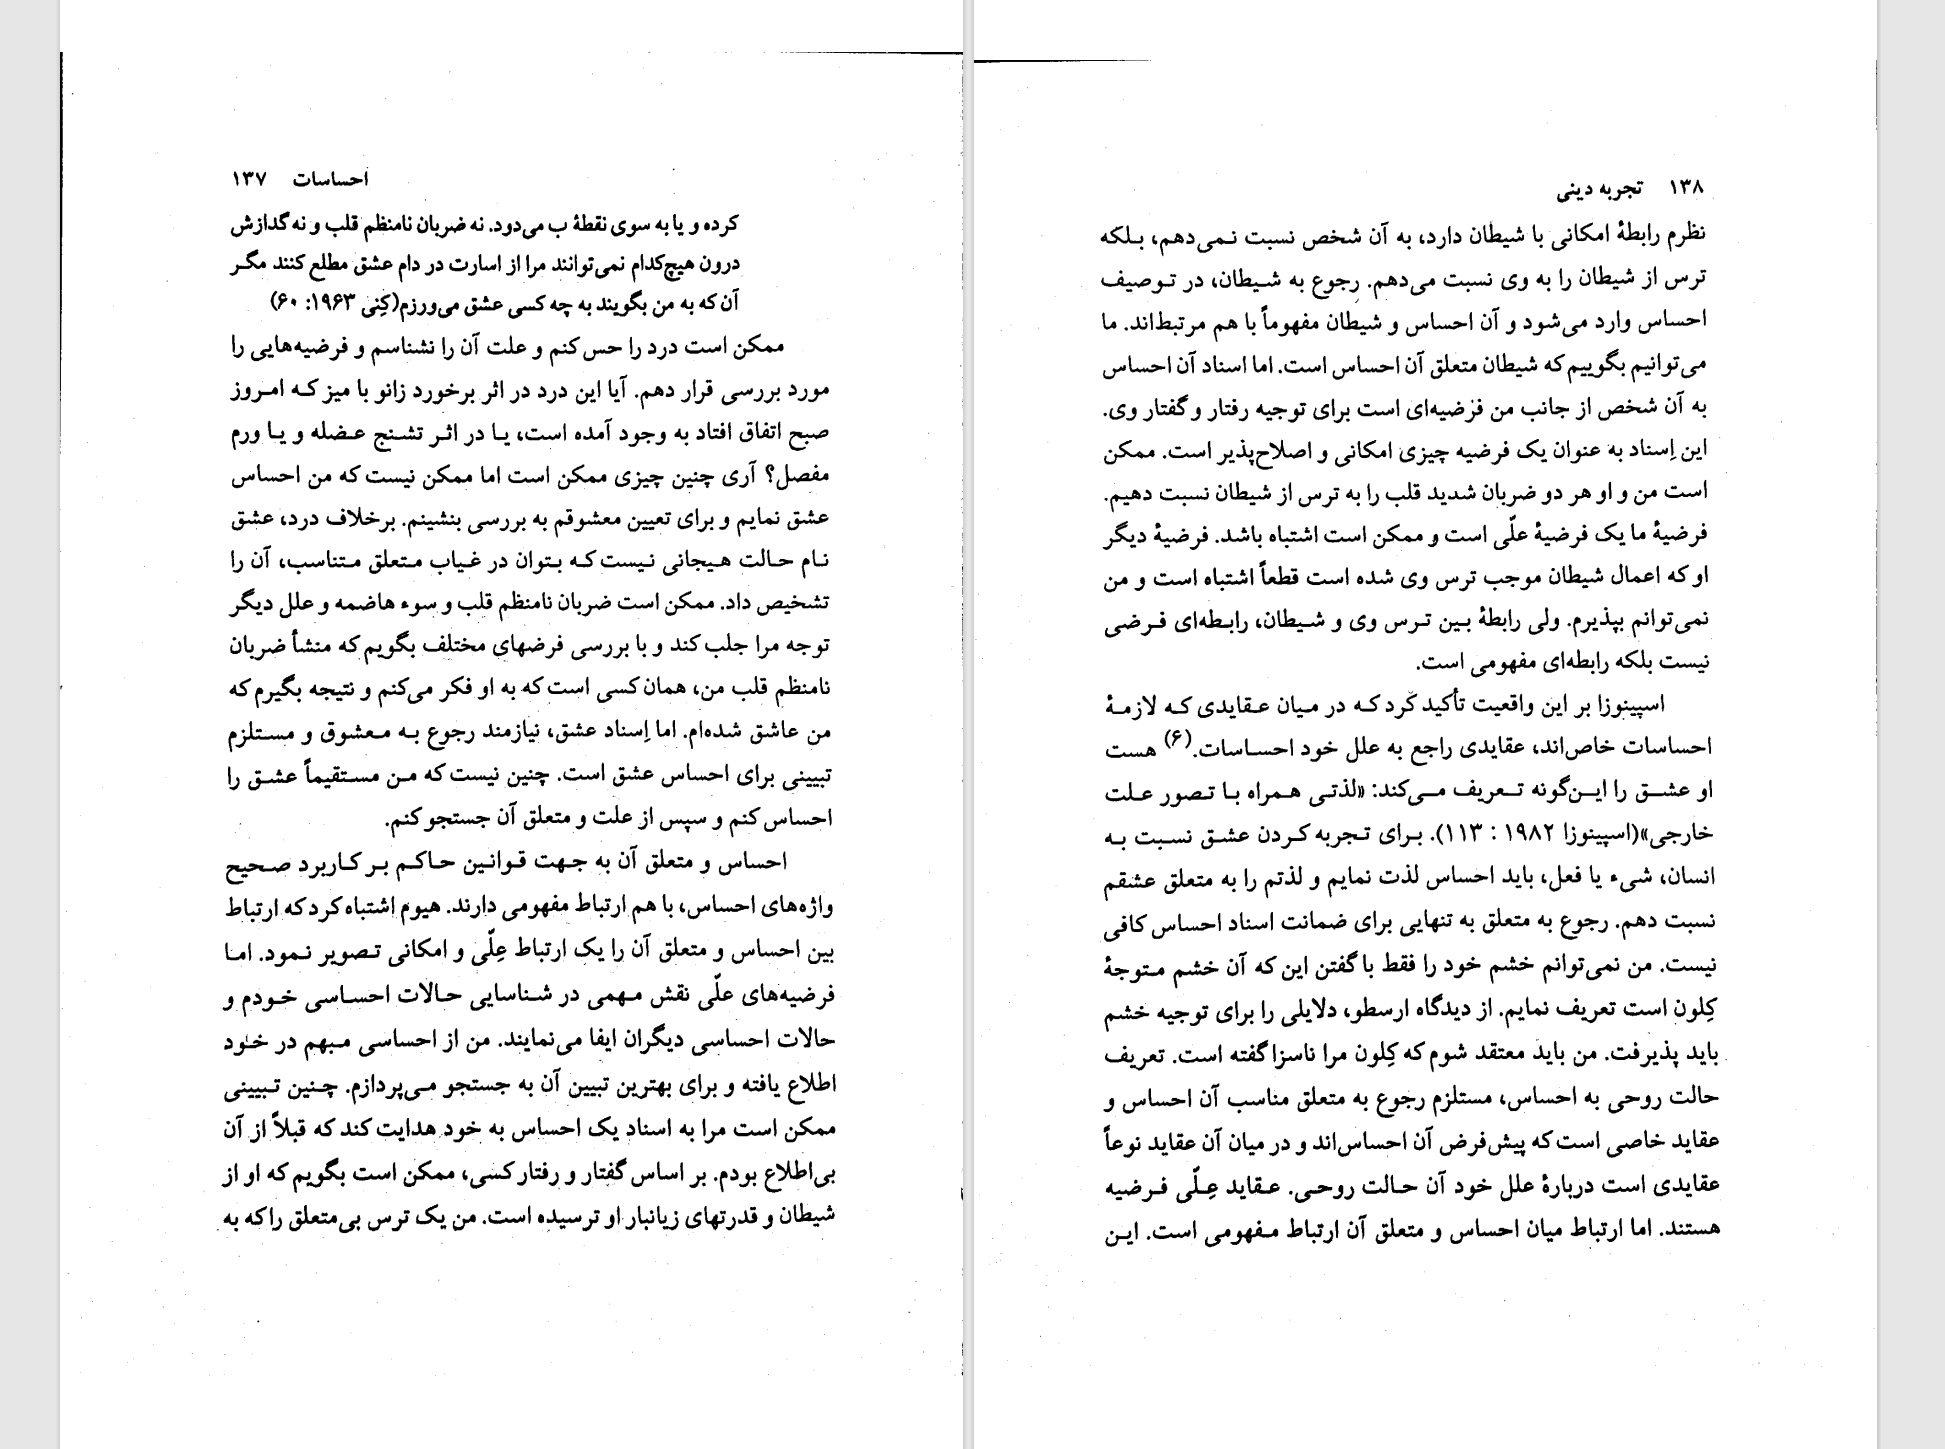 احساسات ۱۳۷
کرده و یا به سوی نقطهٔ ب می‌دود. نه ضربان نامنظم قلب و نه گدازش
درون هیچ‌کدام نمی‌توانند مرا از اسارت در دام عشق مطلع کنند مگر
آن که به من بگویند به چه کسی عشق می‌ورزم(کِنی ۱۹۶۳: ۶۰)
ممکن است درد را حس کنم و علت آن را نشناسم و فرضیه‌هایی را
مورد بررسی قرار دهم. آیا این درد در اثر برخورد زانو با میز که امروز
صبح اتفاق افتاد به وجود آمده است، یا در اثر تشنج عضله و یا ورم
مفصل؟ آری چنین چیزی ممکن است اما ممکن نیست که من احساس
عشق نمایم و برای تعیین معشوقم به بررسی بنشینم. برخلاف درد، عشق
نام حالت هیجانی نیست که بتوان در غیاب متعلق متناسب، آن را
تشخیص داد. ممکن است ضربان نامنظم قلب و سوء هاضمه و علل دیگر
توجه مرا جلب کند و با بررسی فرضهای مختلف بگویم که منشأ ضربان
نامنظم قلب من، همان کسی است که به او فکر می‌کنم و نتیجه بگیرم که
من عاشق شده‌ام. اما اِسناد عشق، نیازمند رجوع به معشوق و مستلزم
تبیینی برای احساس عشق است. چنین نیست که من مستقیماً عشق را
احساس کنم و سپس از علت و متعلق آن جستجو کنم.
احساس و متعلق آن به جهت قوانین حاکم بر کاربرد صحیح
واژه‌های احساس، با هم ارتباط مفهومی دارند. هیوم اشتباه کرد که ارتباط
بین احساس و متعلق آن را یک ارتباط عِلّی و امکانی تصویر نمود. اما
فرضیه‌های علّی نقش مهمی در شناسایی حالات احساسی خودم و
حالات احساسی دیگران ایفا می‌نمایند. من از احساسی مبهم در خود
اطلاع یافته و برای بهترین تبیین آن به جستجو می‌پردازم. چنین تبیینی
ممکن است مرا به اسناد یک احساس به خود هدایت کند که قبلاً از آن
بی‌اطلاع بودم. بر اساس گفتار و رفتار کسی، ممکن است بگویم که او از
شیطان و قدرتهای زیانبار او ترسیده است. من یک ترس بی‌متعلق را که به
۱۳۸ تجربه دینی
نظرم رابطهٔ امکانی با شیطان دارد، به آن شخص نسبت نمی‌دهم، بلکه
ترس از شیطان را به وی نسبت می‌دهم. رجوع به شیطان، در توصیف
احساس وارد می‌شود و آن احساس و شیطان مفهوماً با هم مرتبط‌اند. ما
می‌توانیم بگوییم که شیطان متعلق آن احساس است. اما اسناد آن احساس
به آن شخص از جانب من فرضیه‌ای است برای توجیه رفتار و گفتار وی.
این اِسناد به عنوان یک فرضیه چیزی امکانی و اصلاح‌پذیر است. ممکن
است من و او هر دو ضربان شدید قلب را به ترس از شیطان نسبت دهیم.
فرضیهٔ ما یک فرضیهٔ علّی است و ممکن است اشتباه باشد. فرضیهٔ دیگر
او که اعمال شیطان موجب ترس وی شده است قطعاً اشتباه است و من
نمی‌توانم بپذیرم. ولی رابطهٔ بین ترس وی و شیطان، رابطه‌ای فرضی
نیست بلکه رابطه‌ای مفهومی است.
اسپینوزا بر این واقعیت تأکید کرد که در میان عقایدی که لازمهٔ
احساسات خاص‌اند، عقایدی راجع به علل خود احساسات.(۶) هست
او عشق را این‌گونه تعریف می‌کند: «لذتی همراه با تصور علت
خارجی»(اسپینوزا ۱۹۸۲ : ۱۱۳). برای تجربه کردن عشق نسبت به
انسان، شیء یا فعل، باید احساس لذت نمایم و لذتم را به متعلق عشقم
نسبت دهم. رجوع به متعلق به تنهایی برای ضمانت اسناد احساس کافی
نیست. من نمی‌توانم خشم خود را فقط با گفتن این که آن خشم متوجهٔ
کِلون است تعریف نمایم. از دیدگاه ارسطو، دلایلی را برای توجیه خشم
باید پذیرفت. من باید معتقد شوم که کِلون مرا ناسزا گفته است. تعریف
حالت روحی به احساس، مستلزم رجوع به متعلق مناسب آن احساس و
عقاید خاصی است که پیش‌فرض آن احساس‌اند و در میان آن عقاید نوعاً
عقایدی است دربارهٔ علل خود آن حالت روحی. عقاید عِلّی فرضیه
هستند. اما ارتباط میان احساس و متعلق آن ارتباط مفهومی است. این